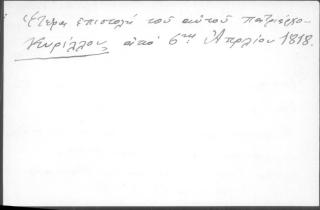 Ἑτέρα ἐπιστολὴ τοῦ αὐτοῦ πατριάρχου
Κυρίλλου, ἀπὸ 6ης Ἀπριλίου 1818.